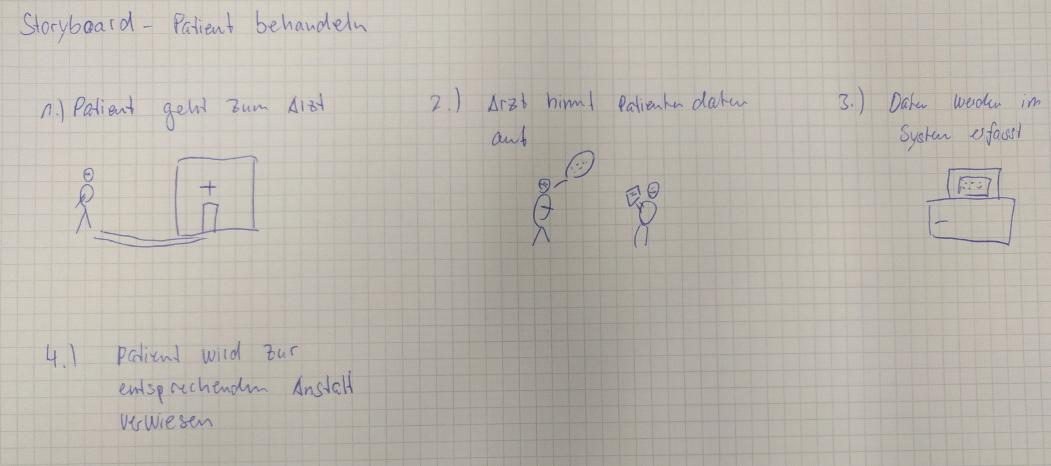 Storyboard - Patient behandeln
1.) Patient geht zum Arzt
2.) Arzt nimmt Patientendaten
auf
3.) Daten werden im
System erfasst
4.) Patient wird zur
entsprechenden Anstalt
verwiesen